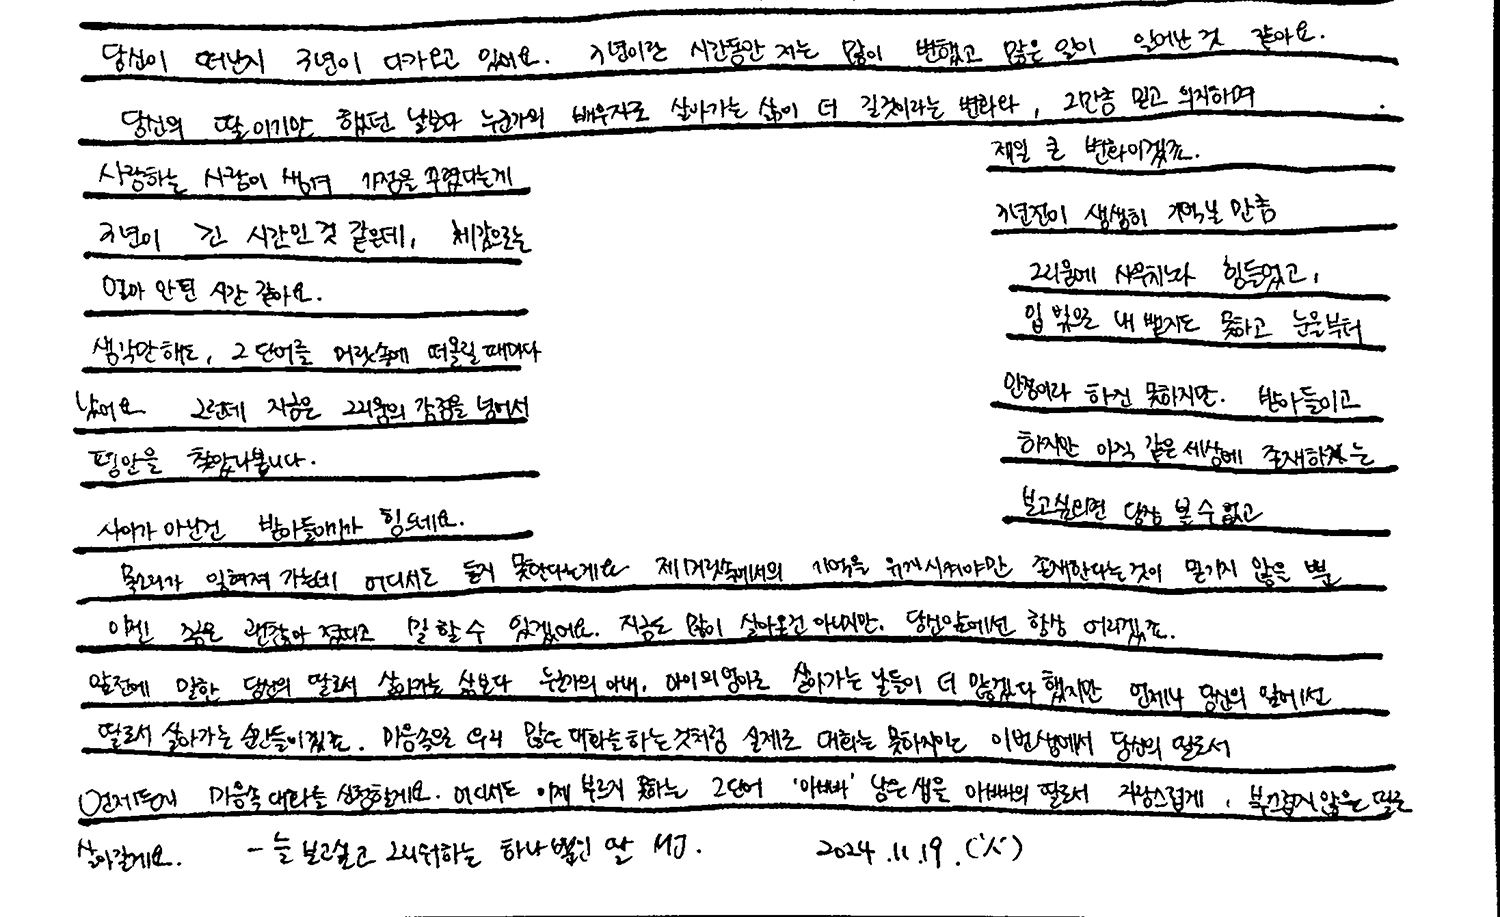 당신이 떠난지 3년이 다가오고 있어요. 3년이란 시간동안 저는 많이 변했고 많은 일이 일어난 것 같아요.
당신의 딸이기만 했던 날보다 누군가의 배우자로 살아가는 삶이 더 길것이라는 변화와, 그만큼 믿고 의지하며
사랑하는 사람이 생겨 가정을 꾸렸다는게
제일 큰 변화이겠죠.
3년이 긴 시간인것 같은데, 체감으로는
3년전이 생생히 기억날 만큼
얼마 안된 시간 같아요.
그리움에 사무치느라 힘들었고,
생각만해도, 그 단어를 머릿속에 떠올릴 때마다
입 밖으로 내 뱉지도 못하고 눈물부터
났어요 그런데 지금은 그리움의 감정을 넘어서
안정이라 하긴 못하지만. 받아들이고
평안을 찾았나봅니다.
하지만 아직 같은 세상에 존재하는
사이가 아닌건 받아들이기가 힘드네요.
보고싶으면 당장 볼 수 없고
목소리가 잊혀져 가는데 어디서도 듣지 못한다는게요 제 머릿속에서의 기억을 유지시켜야만 존재한다는것이 믿기지 않을 뿐
이젠 좀은 괜찮아 졌다고 말 할 수 있겠어요. 지금도 많이 살아온건 아니지만. 당신앞에선 항상 어리겠죠.
앞전에 말한 당신의 딸로서 살아가는 삶보다 누군가의 아내, 아이의 엄마로 살아가는 날들이 더 많겠다 했지만 언제나 당신의 앞에선
딸로서 살아가는 순간들이겠죠. 마음속으로 우리 많은 대화를 하는것처럼 실제로 대화는 못하지만 이번생에서 당신의 딸로서
언제든지 마음속 대화를 신청할게요. 어디서도 이제 부르지 못하는 그 단어 '아빠' 남은 생을 아빠의 딸로서 자랑스럽게, 부끄럽지 않은 딸로
살아갈게요. - 늘 보고싶고 그리워하는 하나 뿐인 딸 MJ. 2024.11.19.(火)